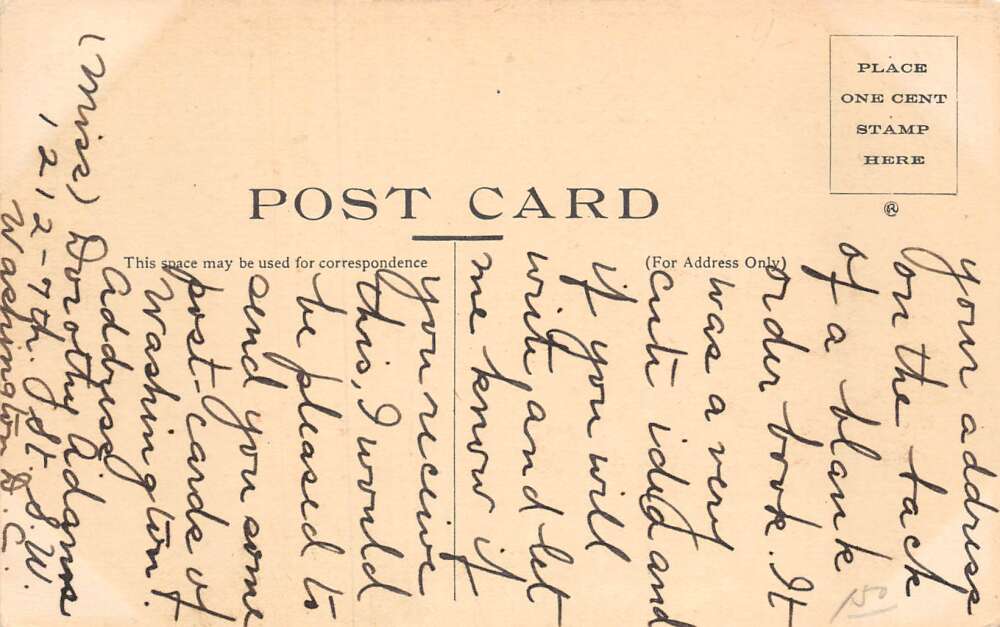 PLACE
ONE CENT
STAMP
HERE
POST CARD
This space may be used for correspondence
(For Address Only)
your address
on the tack
of a blank
order book. It
was a very
cute idea and
if you will
write and let
me know if
you receive
this, I would
be pleased to
send you some
post-cards of
Washington.
Address
(Miss) Dorothy Adams
1212-7th. St. S.W.
Washington D.C.
150